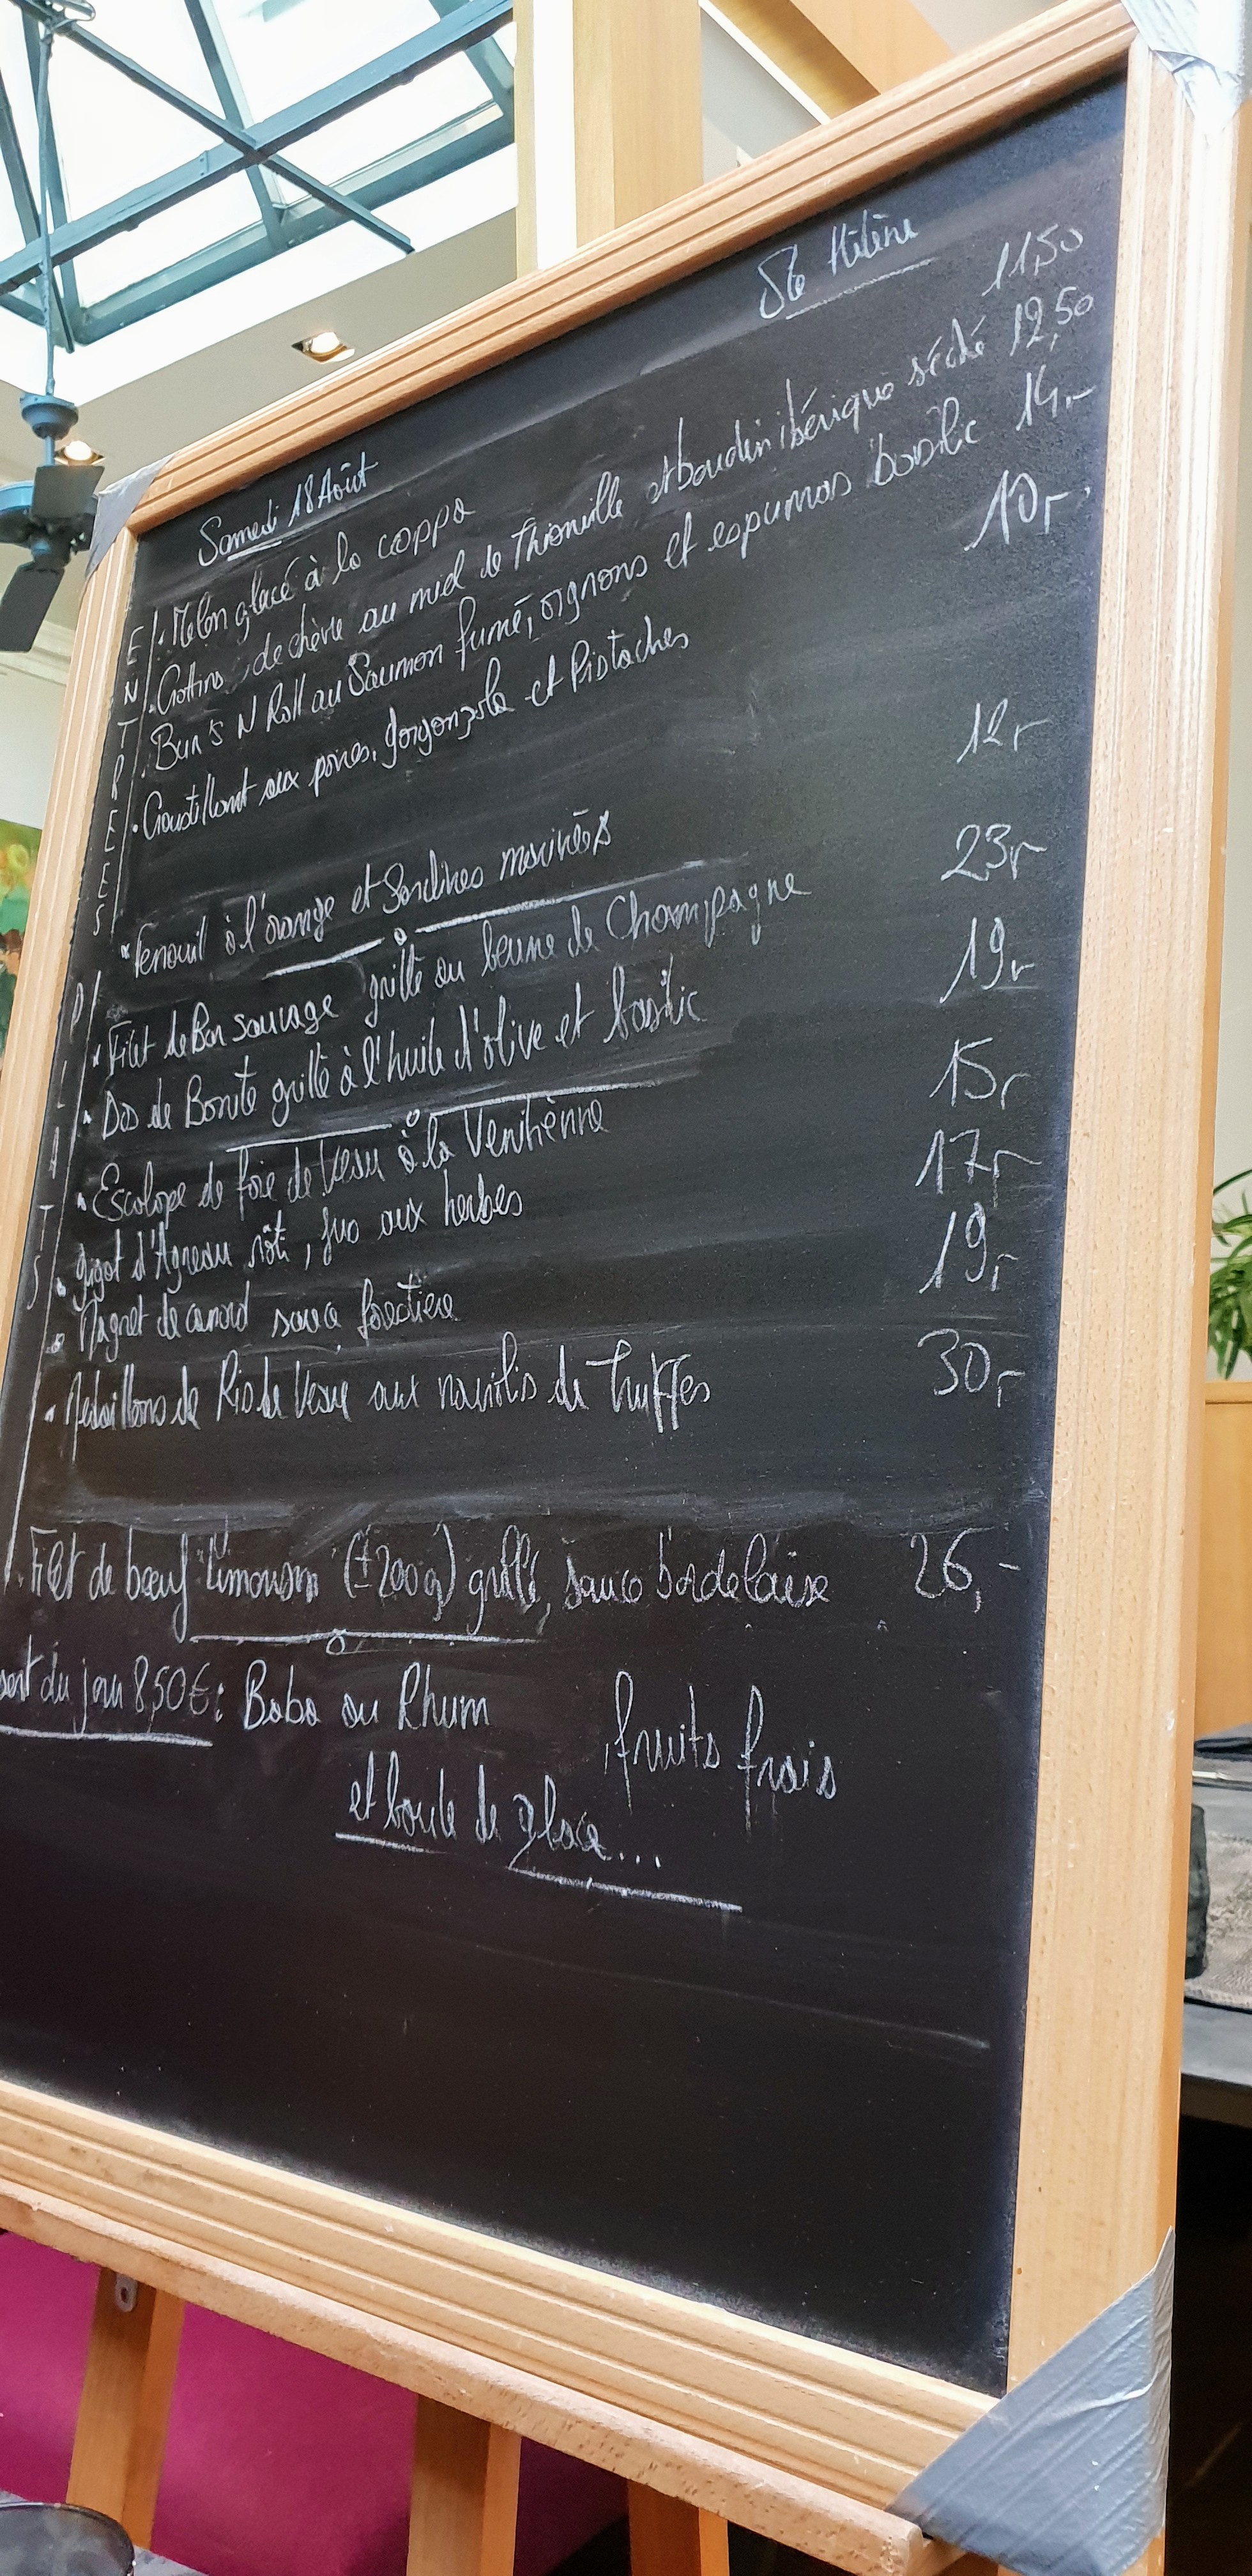 Samedi 18 Août Ste Hélène
ENTREES
. Melon glacé à la coppa 11,50
. Crottins de chèvre au miel de Thionville et boudin ibérique séché 12,50
. Bun's N Roll au Saumon fumé, oignons et espumas basilic 14,-
. Croustillant aux poires, gorgonzola et Pistaches 10,-
. Fenouil à l'orange et Sardines marinées 12,-
PLATS
. Filet de Bar sauvage grillé au beurre de Champagne 23,-
. Dos de Bonite grillé à l'huile d'olive et basilic 19,-
. Escalope de foie de Veau à la Venitienne 15,-
. Gigot d'Agneau rôti, jus aux herbes 17,-
. Magret de canard sauce forestiere 19,-
. Medaillons de Ris de Veau aux raviolis de Truffes 30,-
. Filet de bœuf "Limousin" (±200g) grillé, sauce bordelaise 26,-
du jour 8,50€: Baba au Rhum, fruits frais
et boule de glace...